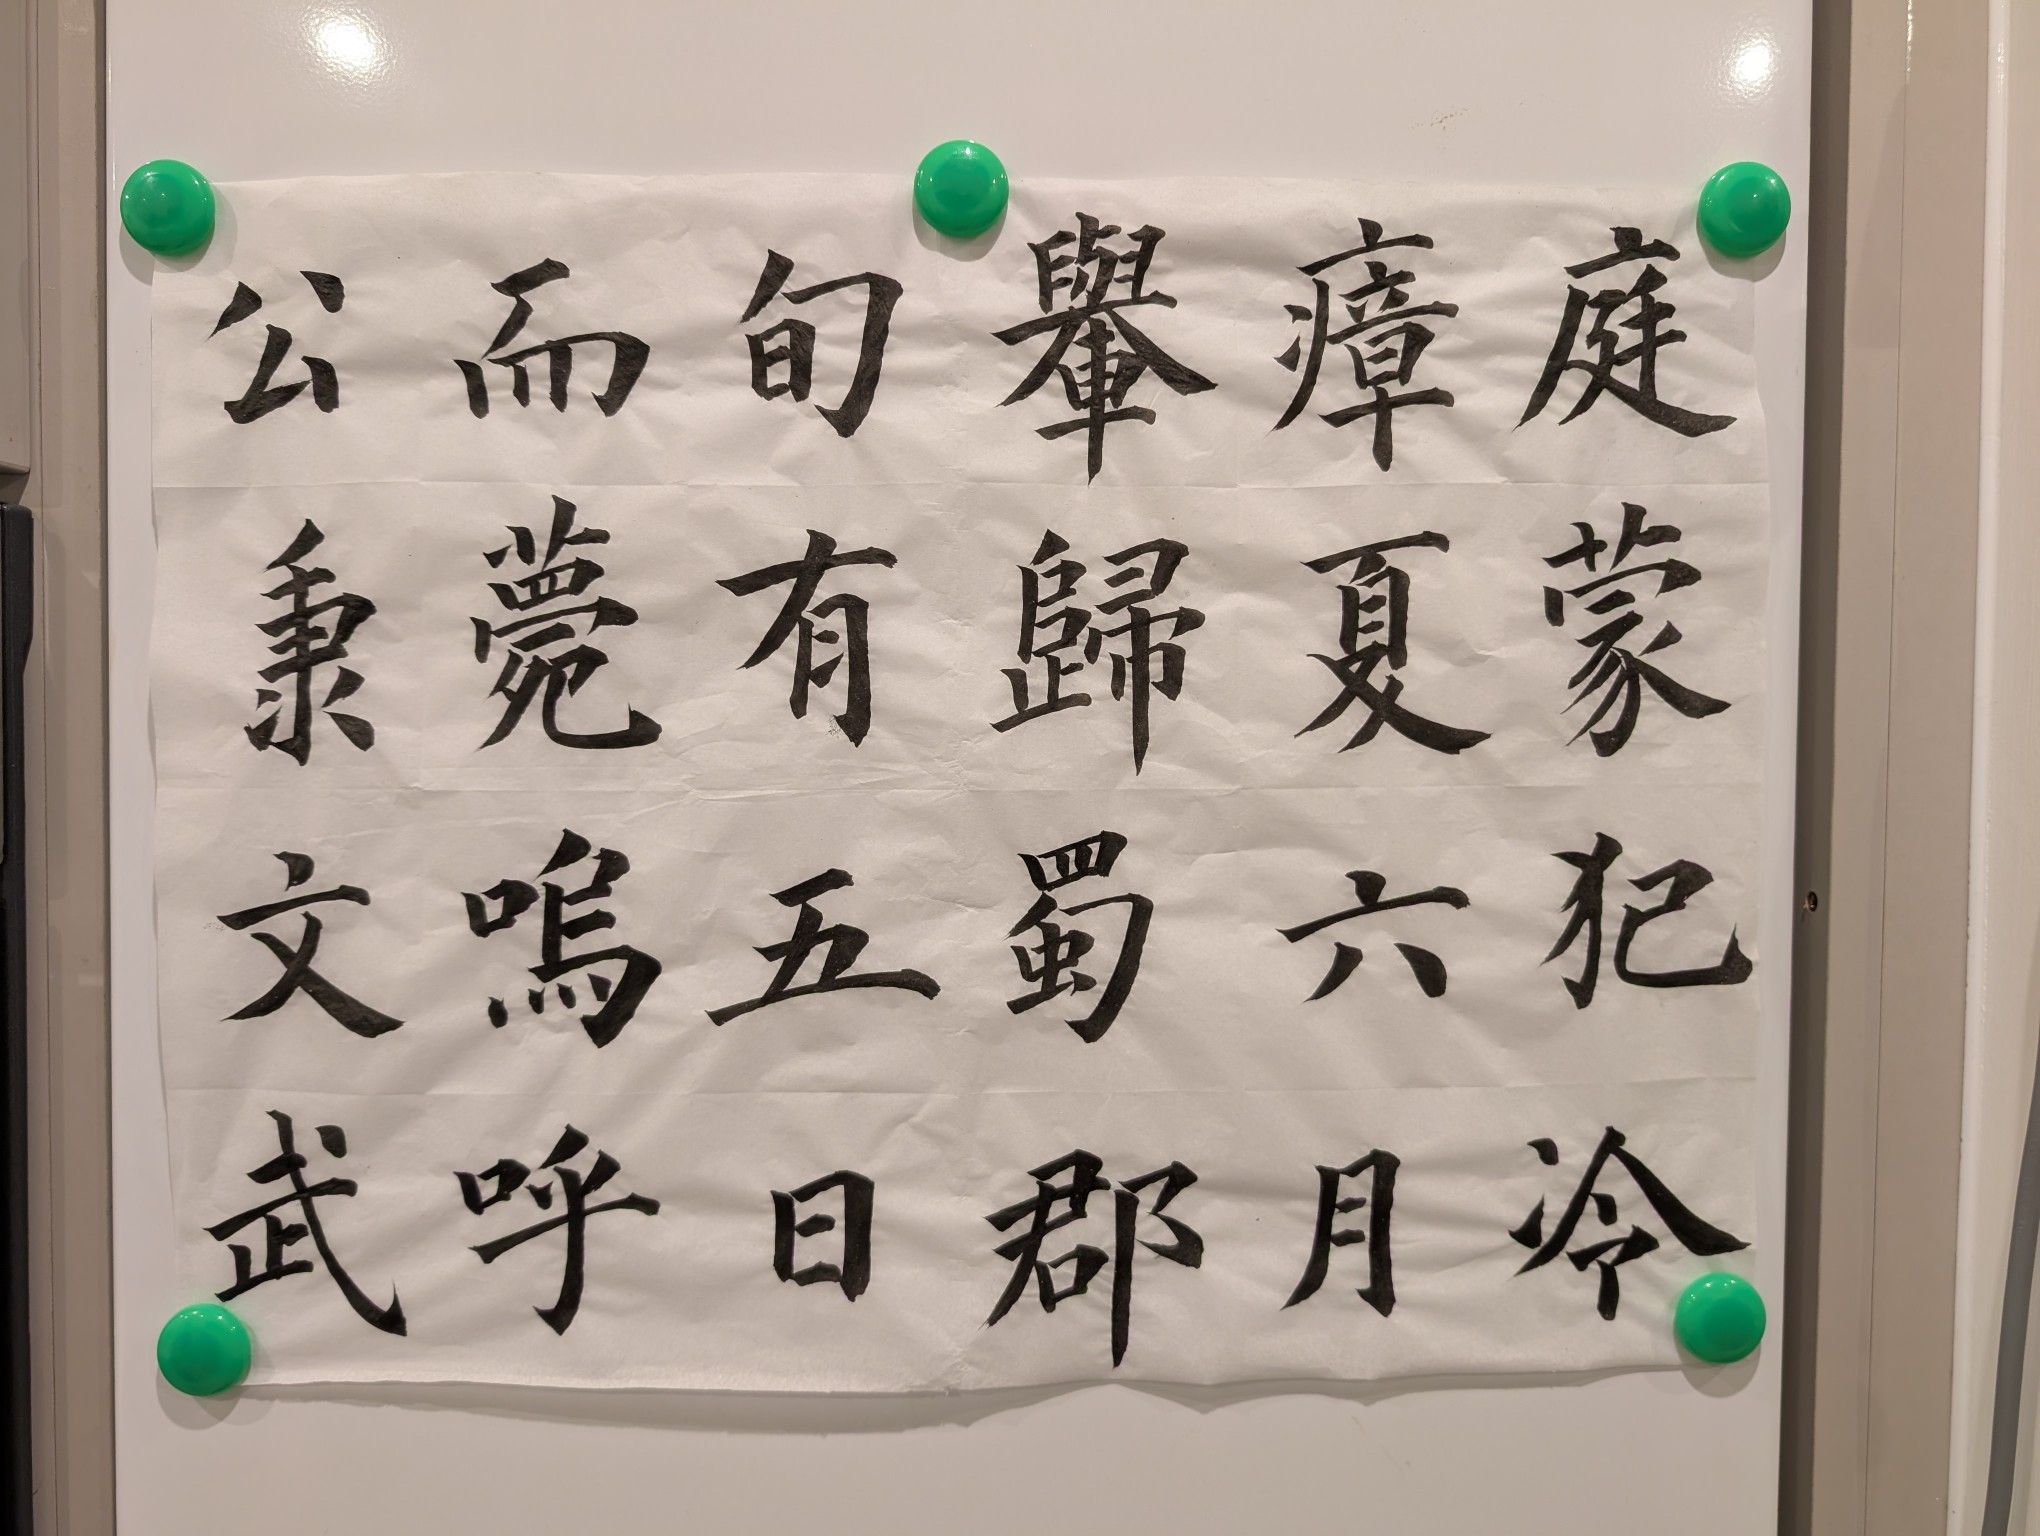 庭蒙犯冷
瘴夏六月
轝歸蜀郡
旬有五日
而薨嗚呼
公秉文武